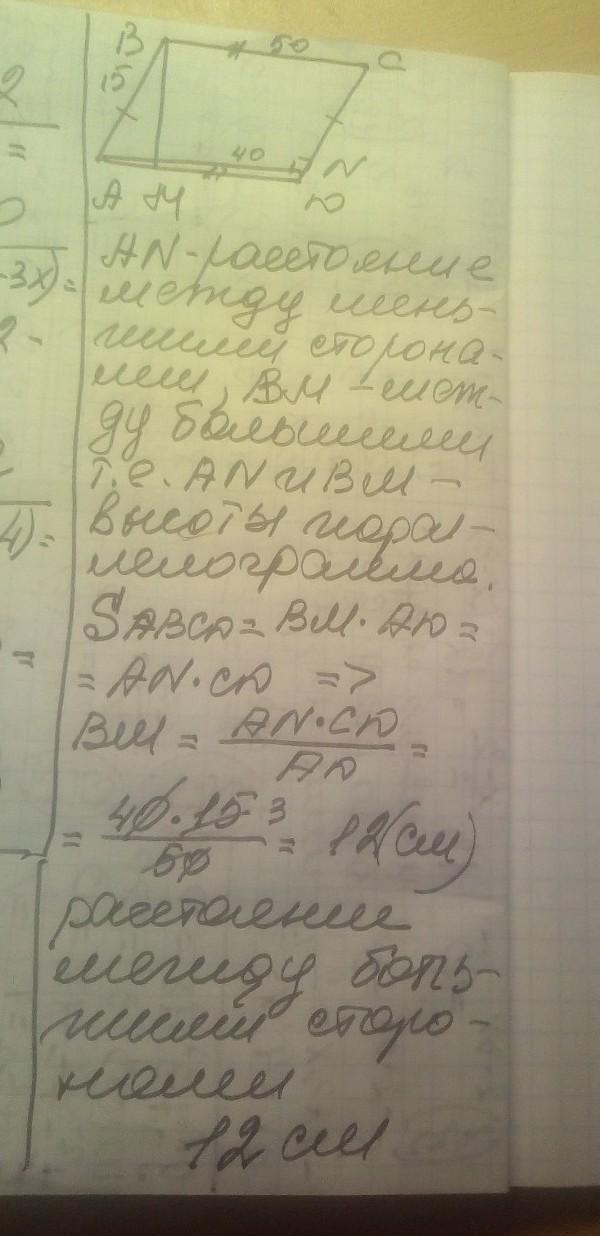 B 50 C
15
40
A M N
D
AN - расстояние
между мень-
шими сторона-
ми, BM - меж-
ду большими
т.е. AN и BM -
высоты парал-
лелограмма.
SABCD = BM · AD =
= AN · CD =>
BM = AN · CD / AD =
= 40 · 15 3 / 50 = 12 (см)
расстояние
между боль-
шими сторо-
нами
12 см
2
=
0
-3x) =
2 -
4) =
=